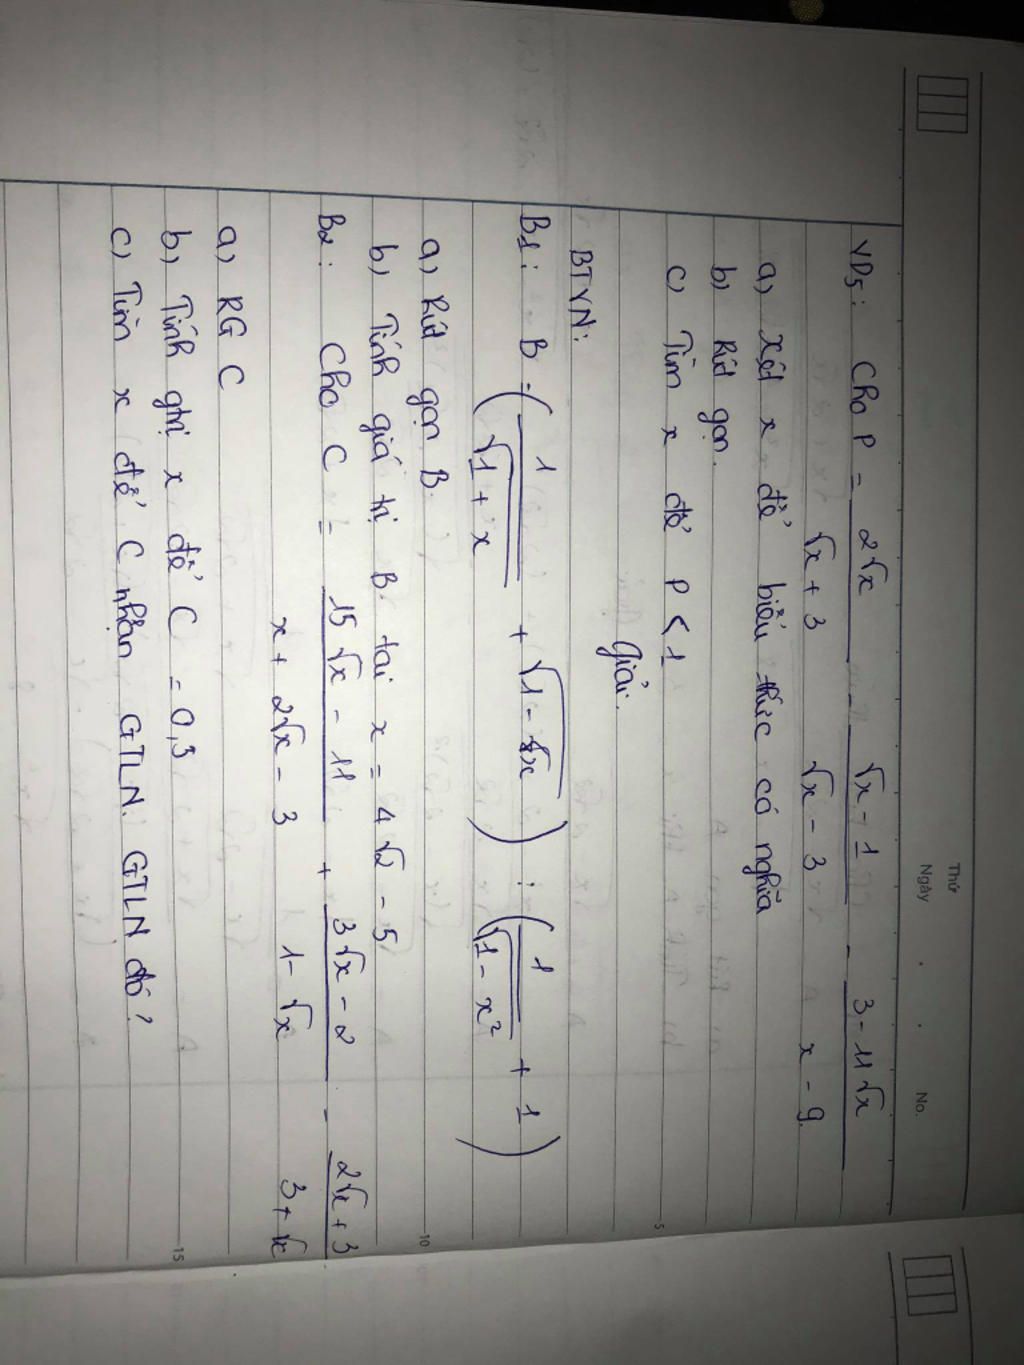 Thứ
Ngày . . No.
VD5: Cho P = 2√x / (√x + 3) - (√x - 1) / (√x - 3) - (3 - 11√x) / (x - 9)
a) Xét x để biểu thức có nghĩa
b) Rút gọn.
c) Tìm x để P < 1
Giải.
BTVN:
B1: B = (1 / √(1 + x) + √(1 - x)) : (1 / √(1 - x²) + 1)
a) Rút gọn B.
b) Tính giá trị B tại x = 4√2 - 5
B2: Cho C = (15√x - 11) / (x + 2√x - 3) + (3√x - 2) / (1 - √x) - (2√x + 3) / (3 + √x)
a) RG C
b) Tính gtrị x để C = 0,5
c) Tìm x để C nhận GTLN. GTLN đó?
5
10
15